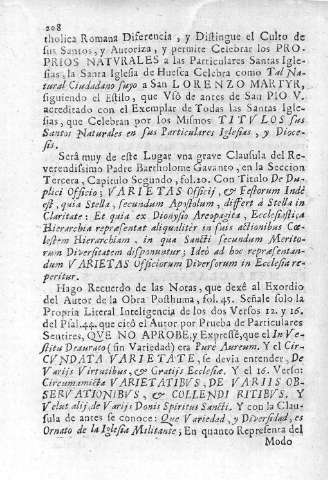 208
tholica Romana Diferencia, y Distingue el Culto de
sus Santos, y Autoriza, y permite Celebrar los PRO-
PRIOS NATVRALES a las Particulares Santas Igle-
sias, la Santa Iglesia de Huesca Celebra como Tal Na-
tural Ciudadano suyo a San LORENZO MARTYR,
siguiendo el Estilo, que Vsò de antes de San PIO V.
acreditado con el Exemplar de Todas las Santas Igle-
sias, que Celebran por los Mismos TITVLOS sus
Santos Naturales en sus Particulares Iglesias, y Dioce-
sis.
Serà muy de este Lugar vna grave Clausula del Re-
verendissimo Padre Bartholome Gavanto, en la Seccion
Tercera, Capitulo Segundo, fol. 20. Con Titulo De Du-
plici Officio; VARIETAS Officij, & Festorum Indè
est, quia Stella, secundum Apostolum, differt à Stella in
Claritate: Et quia ex Dionysio Areopagita, Ecclesiastica
Hierarchia repræsentat aliqualitèr in suis actionibus Cœ-
lestem Hierarchiam, in qua Sancti secundum Merito-
rum Diversitatem disponuntur; Ideò ad hoc repræsentan-
dum VARIETAS Officiorum Diversorum in Ecclesia re-
peritur.
Hago Recuerdo de las Notas, que dexè al Exordio
del Autor de la Obra Posthuma, fol. 45. Señale solo la
Propria Literal Inteligencia de los dos Versos 12. y 16.
del Psal. 44. que citò el Autor por Prueba de Particulares
Sentires, QUE NO APROBE, y Expressè, que el In Ve-
stitu Deaurato (sin Variedad) era Pure Aureum. Y el Cir-
CVNDATA VARIETATE, se devia entender, De
Varijs Virtutibus, & Gratijs Ecclesiæ. Y el 16. Verso:
Circumamicta VARIETATIBVS, DE VARIIS OB-
SERVATIONIBVS, & COLLENDI RITIBVS. Y
Velut alij, de Varijs Donis Spiritus Sancti. Y con la Clau-
sula de antes se conoce: Que Variedad, y Diversidad, es
Ornato de la Iglesia Militante; En quanto Representa del
Modo